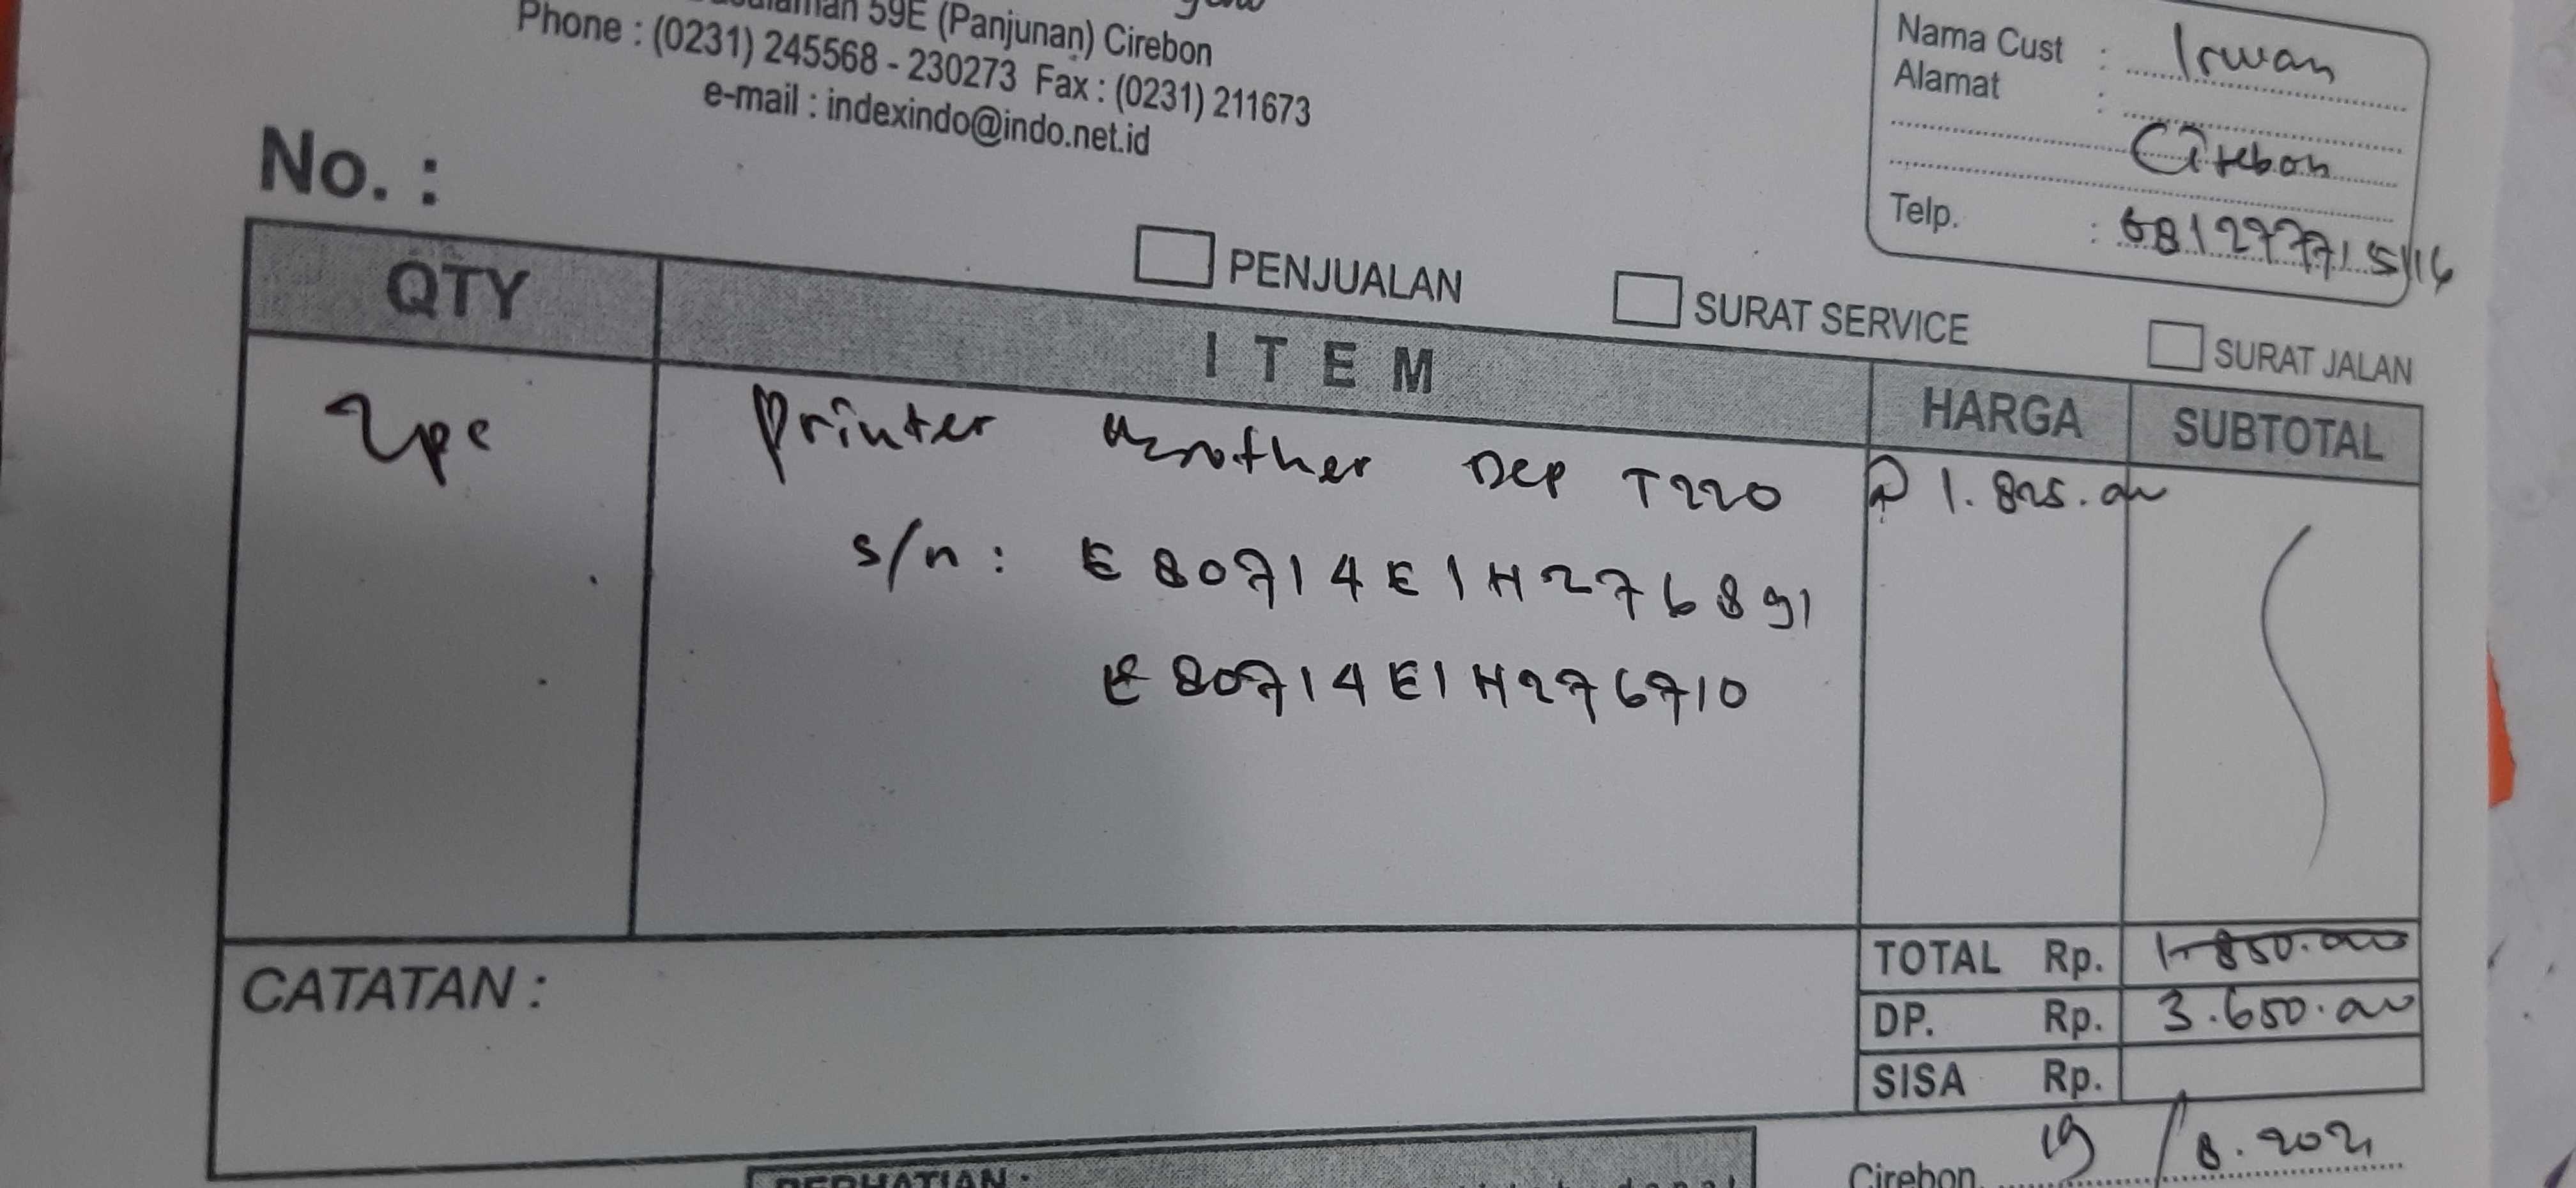 59E (Panjunan) Cirebon
Phone : (0231) 245568 - 230273 Fax : (0231) 211673
e-mail : indexindo@indo.net.id
Nama Cust : Irwan
Alamat :
Cirebon
Telp. : 081277715116
No. :
PENJUALAN
SURAT SERVICE
SURAT JALAN
QTY
ITEM
HARGA
SUBTOTAL
2pc
Printer Brother DCP T220
1.825.000
s/n : E80714E1H276891
E80714E1H276710
CATATAN :
TOTAL Rp. 1.850.000
DP. Rp. 3.650.000
SISA Rp.
PERHATIAN :
Cirebon, 19/8.2021